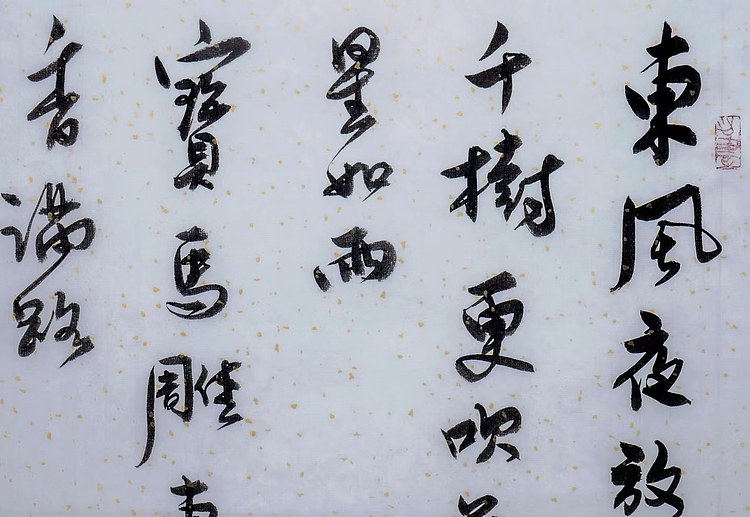 東風夜放
千樹更吹
星如雨
寶馬雕車
香滿路